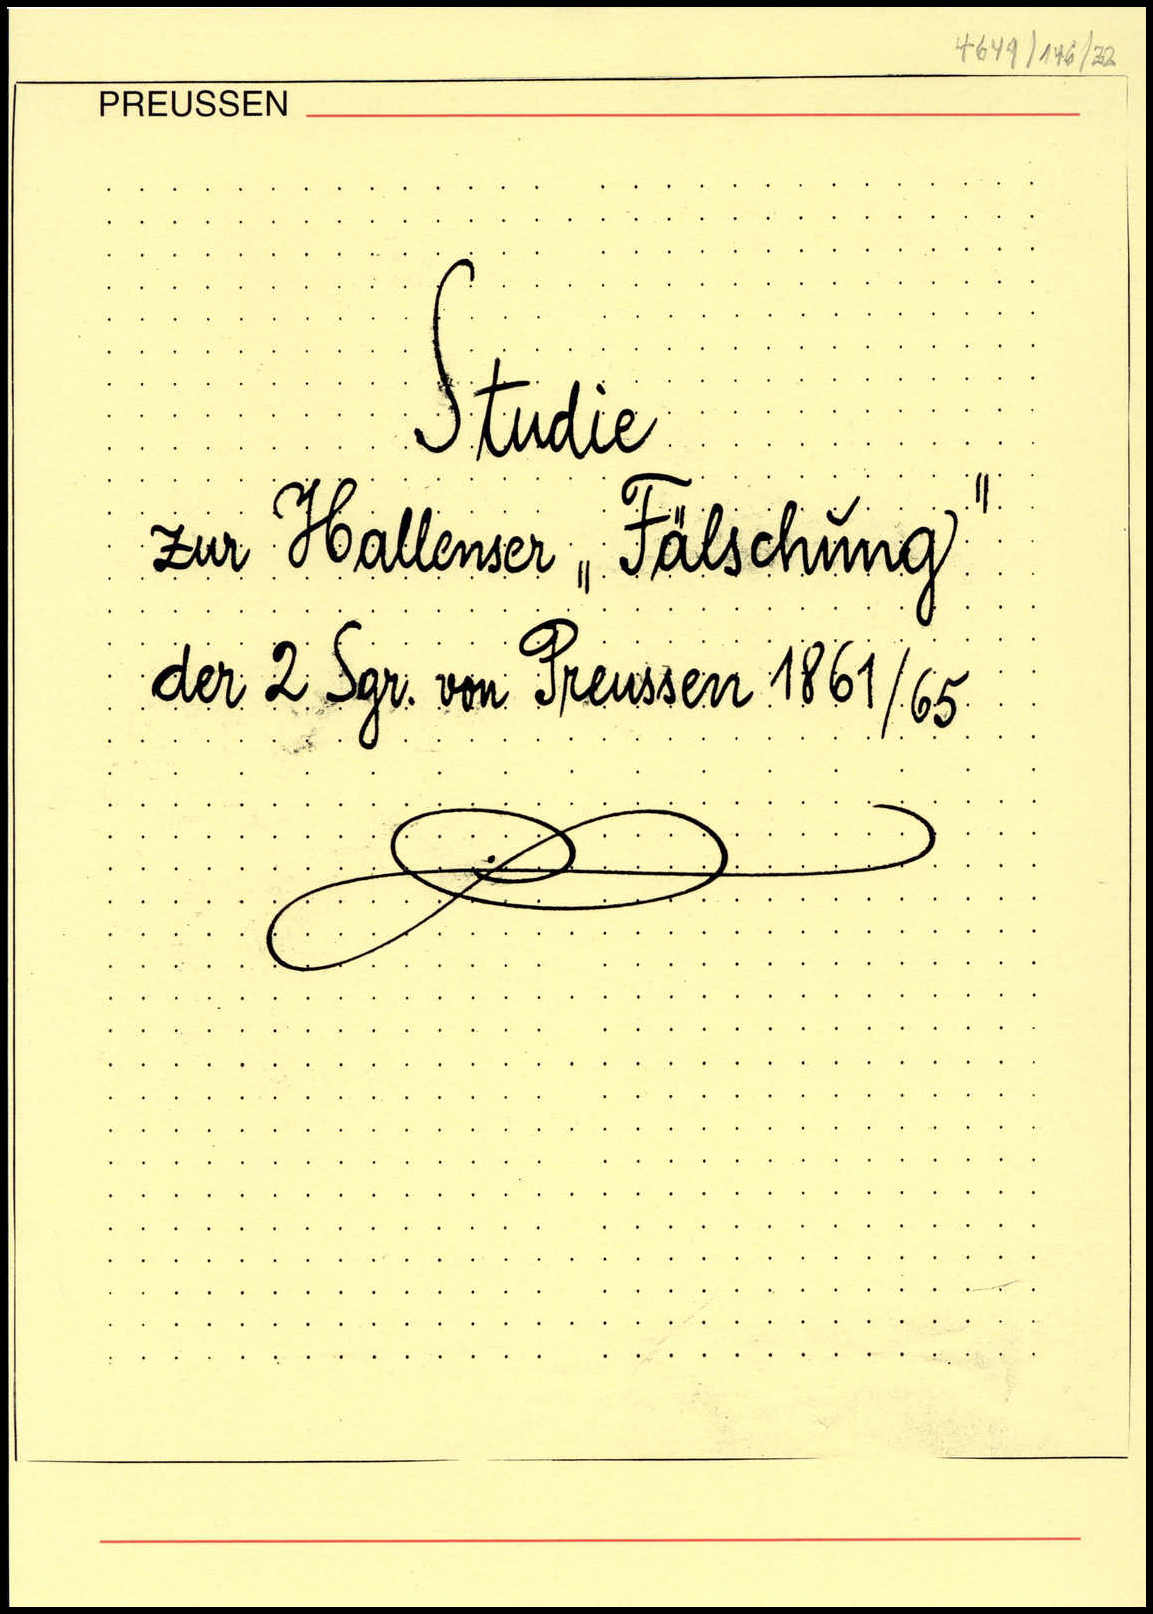 4649/146/22
PREUSSEN
Studie
zur Hallenser „Fälschung"
der 2 Sgr. von Preussen 1861/65